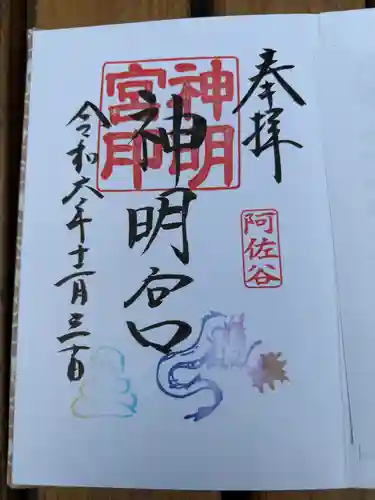 奉拝
阿佐谷
神明宮
神明宮印
令和六年十二月三十日